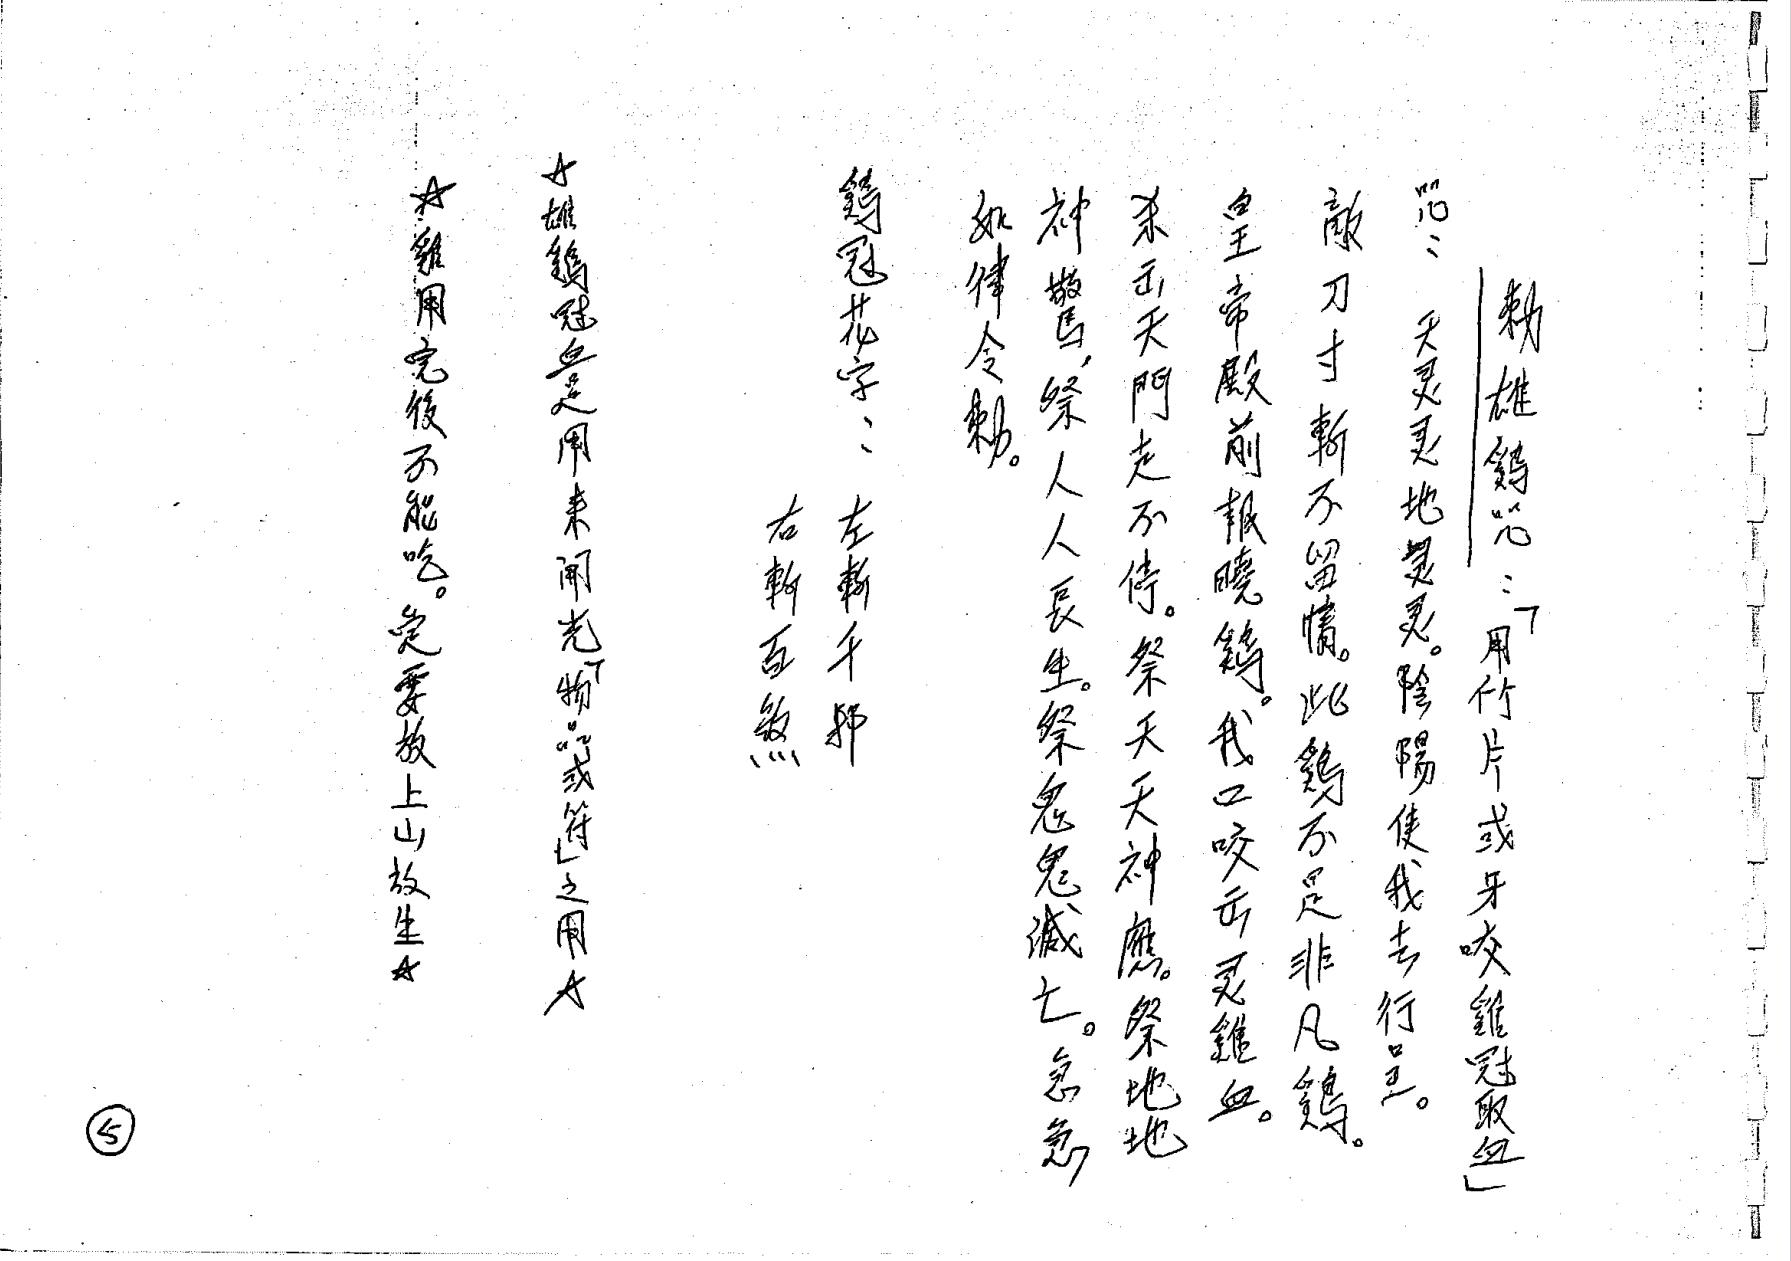 勅雄鷄咒：「用竹片或牙咬雞冠取血」
咒：天灵灵地灵灵。陰陽使我去行罡。
敵刀寸斬不留情。此鷄不是非凡鷄。
皇帝殿前報曉鷄。我口咬出灵雞血。
杀出天門走不停。祭天天神應。祭地地
神驚，祭人人長生。祭鬼鬼滅亡。急急
如律令勅。
鷄冠花字：左斬千邪
右斬百煞
☆雄鷄冠血是用來開光「物品或符」之用☆
☆雞用完後不能吃。定要放上山放生☆
5